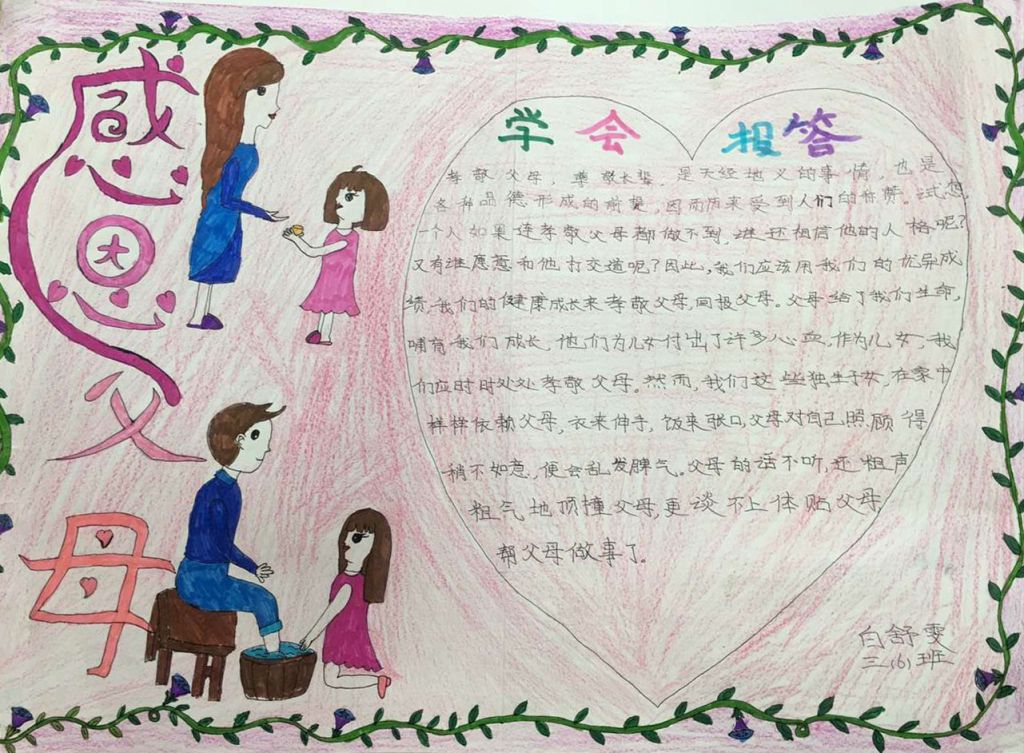 感恩父母
学会报答
孝敬父母，尊敬长辈，是天经地义的事情，也是
各种品德形成的前提，因而历来受到人们的称赞。试想
一个人如果连孝敬父母都做不到，谁还相信他的人格呢？
又有谁愿意和他打交道呢？因此，我们应该用我们的优异成
绩，我们的健康成长来孝敬父母，回报父母。父母给了我们生命，
哺育我们成长，他们为儿女付出了许多心血，作为儿女，我
们应时时处处孝敬父母。然而，我们这些独生子女，在家中
样样依赖父母，衣来伸手，饭来张口，父母对自己照顾得
稍不如意，便会乱发脾气。父母的话不听，还粗声
粗气地顶撞父母，更谈不上体贴父母
帮父母做事了。
白舒雯
三（6）班